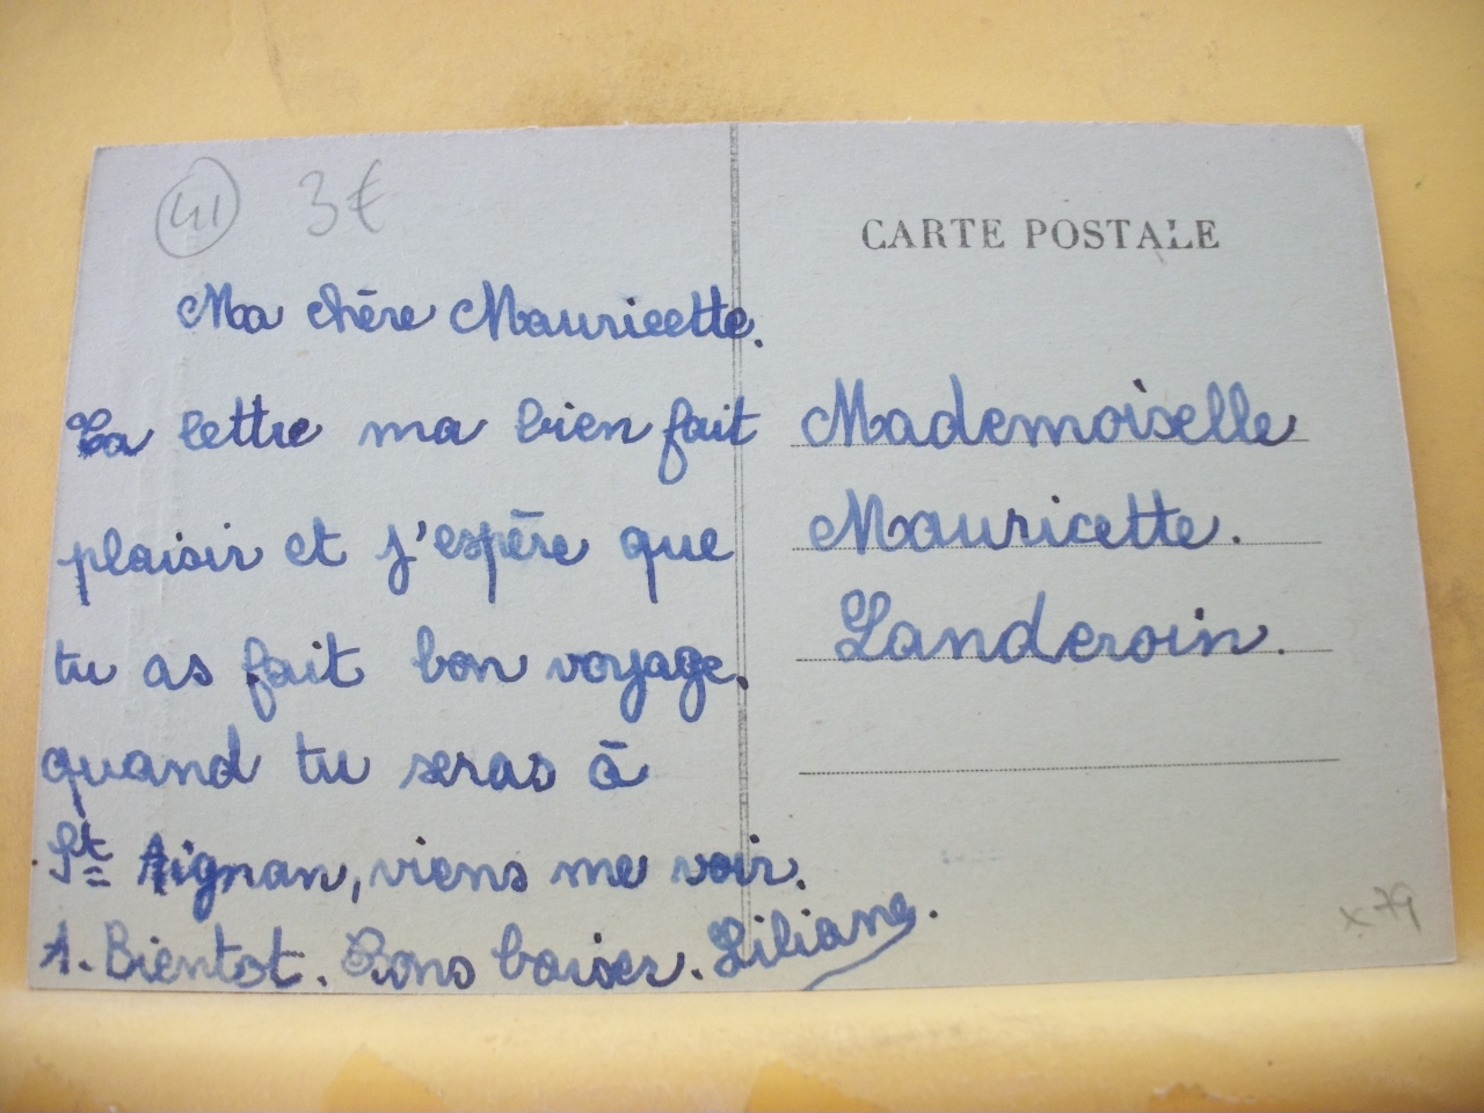 41 3€
CARTE POSTALE
Ma chère Mauricette.
Ta lettre ma bien fait
plaisir et j'espère que
tu as fait bon voyage.
quand tu seras à
St Aignan, viens me voir.
A. Bientot. Bons baiser. Liliane.
Mademoiselle
Mauricette.
Landeroin.
x79